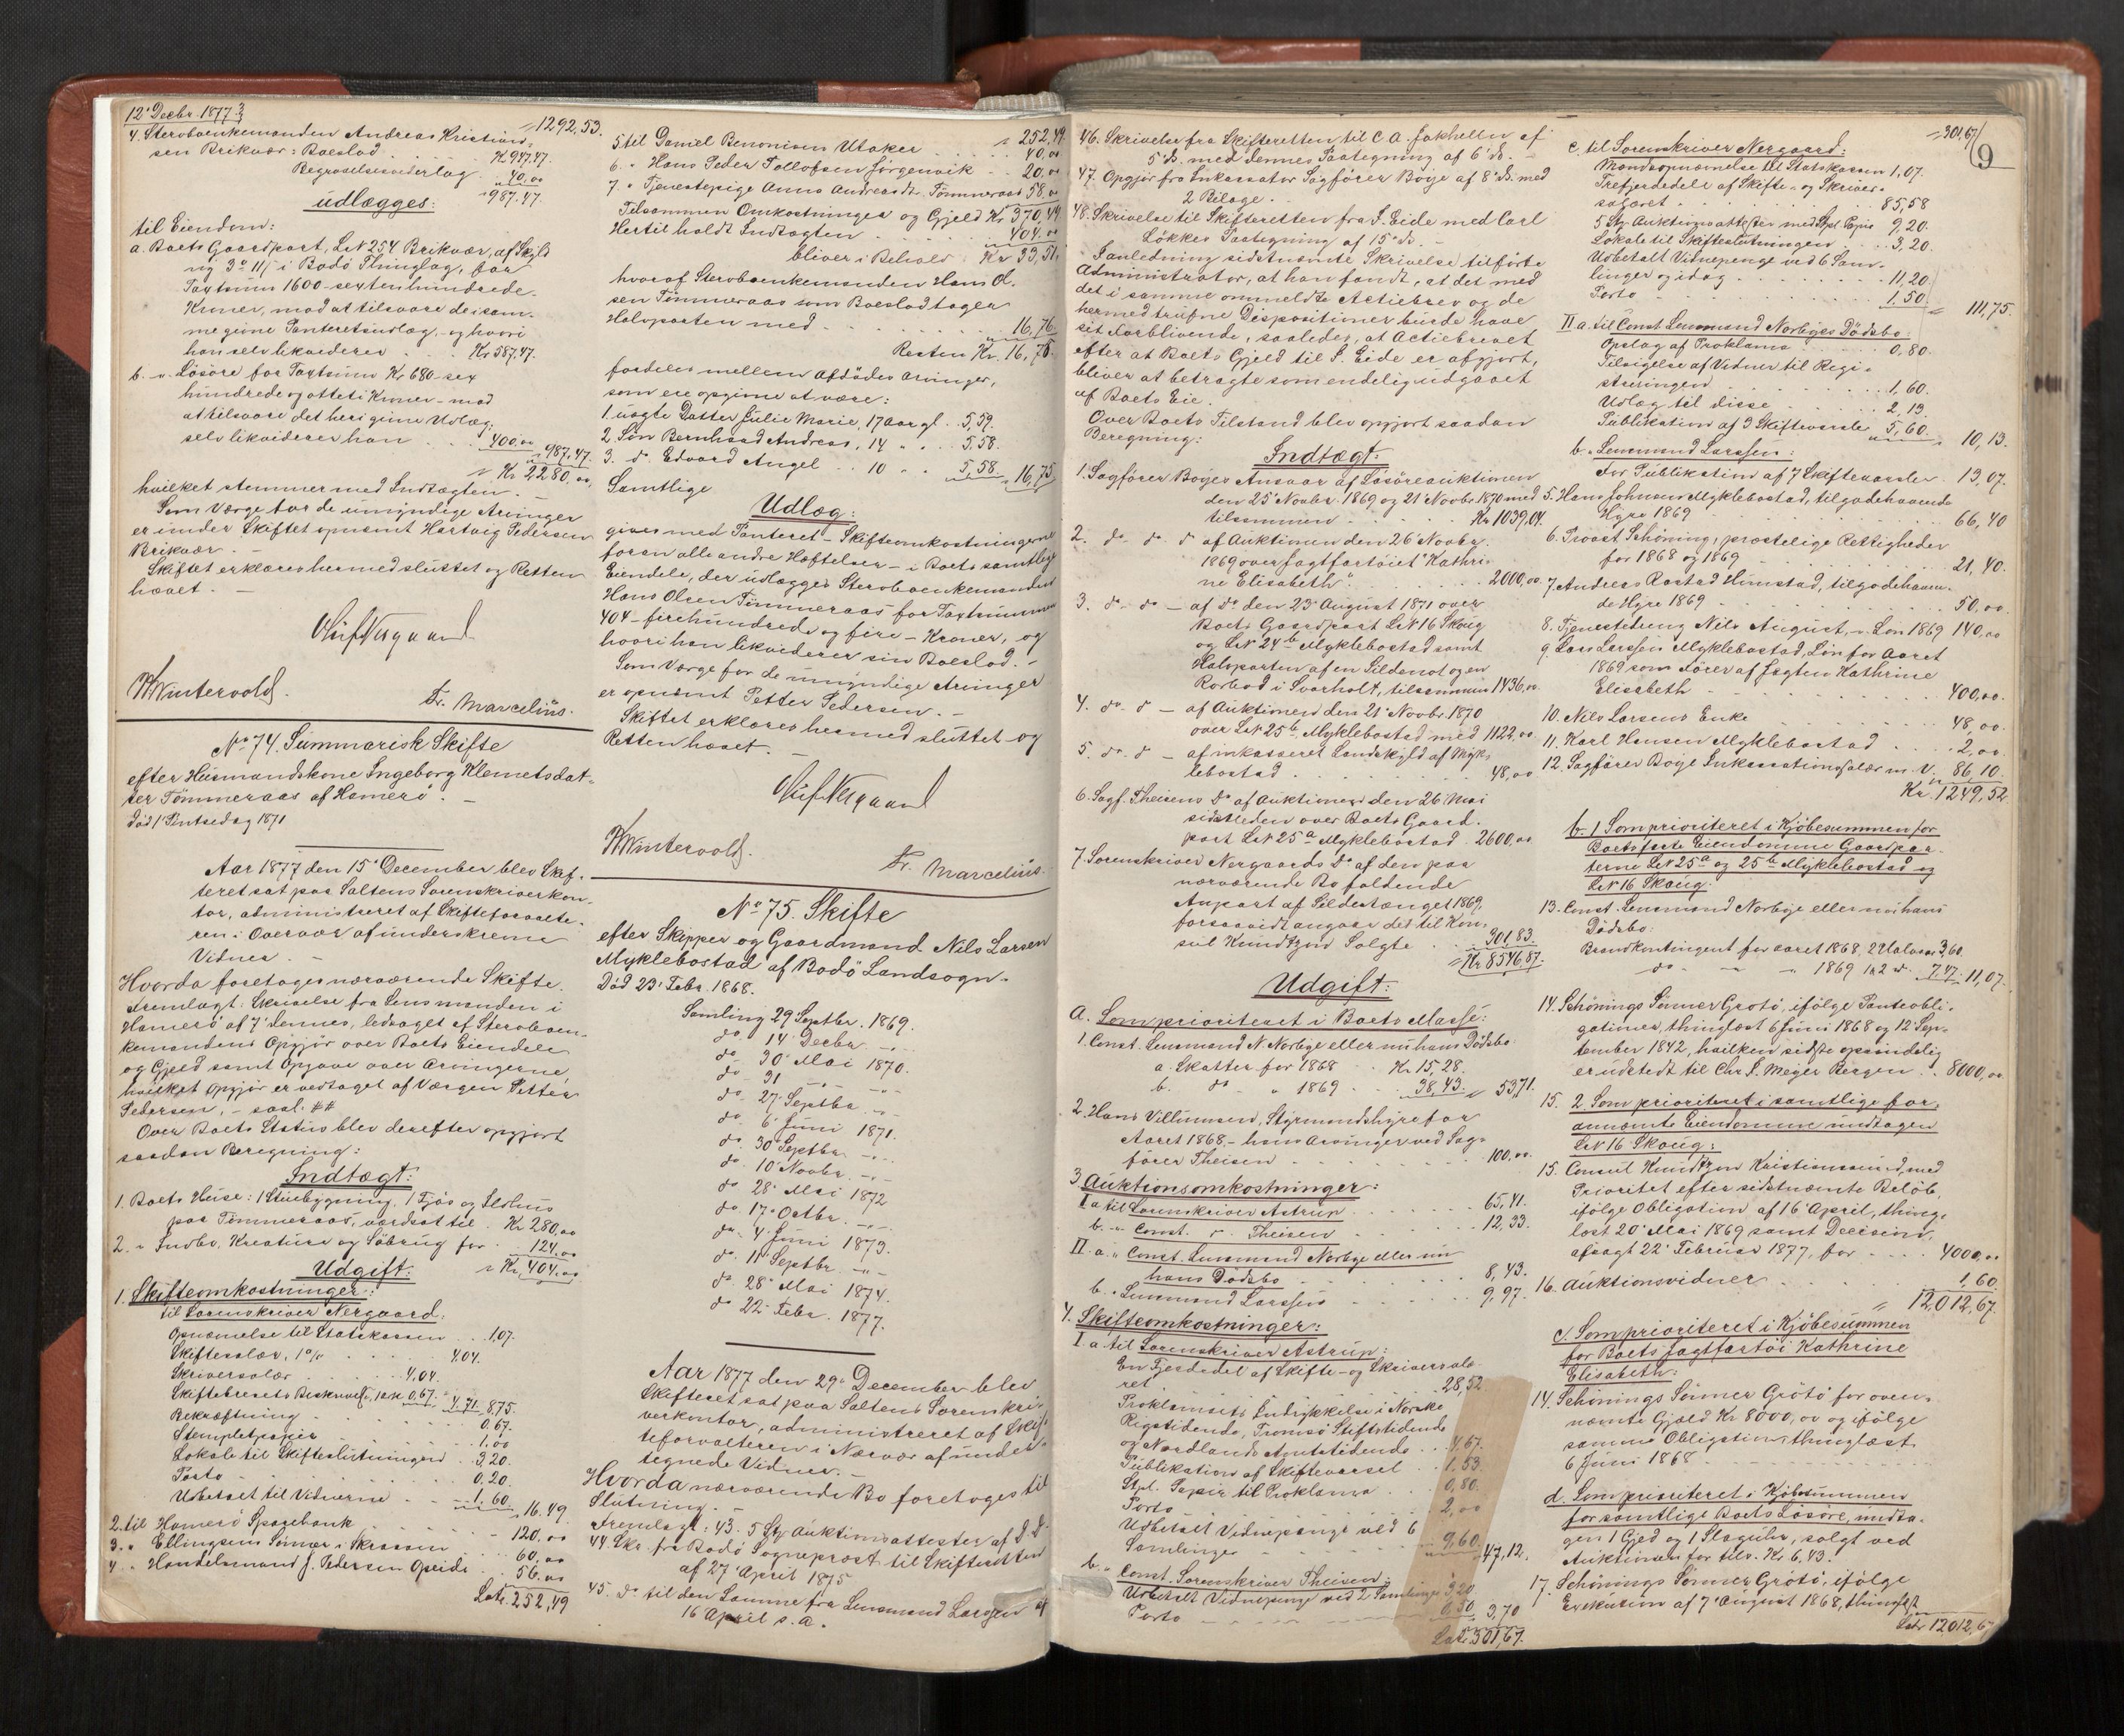 12' Decbr. 1877.
4. Sterboenkemanden Andreas Kristian-
sen Brikvær: Boeslod . . Kr 947.47.
Begravelsesvederlag . 40,00
" 987.47.
" 1292,53.
udlægges:
til Eiendom:
a. Boets Gaardpart, LN 254 Brikvær, af Skyld
i Bodö Thinglag, for
Taxtsum 1600 - sextenhundrede -
Kroner, mod at tilsvare de i sam-
me givne Panteretsudlæg, og hvori
han selv likviderer . . Kr 587.47.
b. " Lösöre for Taxtsum Kr 680 - sex
hundrede og otteti Kroner - mod
at tilsvare det heri givne Udlæg;
selv likviderer han . . 400,00
" 987.47.
" Kr 2280,00
hvilket stemmer med Indtægten.
Som Værge for de umyndige Arvinger
er under Skiftet opnævnt Hartvig Pedersen
Brikvær. -
Skiftet erklæres hermed sluttet og Retten
hævet. -
Fr. Marcelius.
No 74. Summarisk Skifte
efter Husmandskone Ingeborg Klemetsdat-
ter Tömmeraas af Hamerö. -
Död 1' Pintsedag 1871
Aar 1877 den 15' December blev Skif-
teret sat paa Saltens Sorenskriverkon-
tor, administreret af Skifteforvalte-
ren i Overvær af underskrevne
Vidner. -
Hvorda foretoges nærværende Skifte.
Fremlagt: Skrivelse fra Lensmanden i
Hamerö af 7' dennes, ledsaget af Sterboen-
kemandens Opgjör over Boets Eiendele
og Gjæld samt Opgave over Arvingerne,
hvilket Opgjör er vedtaget af Værgen Petter
Pedersen, -
Over Boets Status blev derefter opgjort
saadan Beregning:
Indtægt:
1. Boets Huse: 1 Stuebygning, 1 Fjös og Ildhus
paa Tömmeraas, værdsat til . Kr. 280,00
2. " Indbo, Kreature og Söbrug for . 124,00
" Kr. 404,00
Udgift:
1. Skifteomkostninger:
til Sorenskriver Nergaard:
Opnævnelse til Statskassen . . 1,07.
Skiftesalær, 1% . . 4.04.
Skriversalær . . 4,04.
Skiftebrevets 0,67. " 4.71. 8,75.
Bekræftning . . 0,67.
Stempletpapir . . 1,00
Lokale til Skifteslutningen . 3,20.
Porto . . 0,20.
Udbetalt til Vidnerne . . 1,60. " 16.49.
2. til Hamerö Sparebank . . 120,00
3. " Ellingsens Sönner i Skroven . . 60,00
4. " Handelsmand J. Pedersen Opeide . 56,00
Lat. 252,49
" 252.49.
5. til Daniel Benonisen Utaker . . 40,00
6. " Hans Peder Tollofsen Jörgenvik . . 20,00
7. " Tjenestepige Anna Andreasdr. Tömmeraas 58,00
Tilsammen Omkostninger og Gjæld Kr 370,49
Hertil holdt Indtægten . . 404.00
bliver i Behold . Kr 33,51.
hvoraf Sterboenkemanden Hans Ol-
sen Tömmeraas som Boeslod tager
Halvparten med . . 16,76.
Resten Kr. 16,75.
fordeles mellem Afdödes Arvinger,
som ere opgivne at være:
1. ugte Datter Julie Marie, 17 Aar gl. . 5,59.
2. Sön Bernhaard Andreas, 14 " " . 5,58.
3. do Edvard Angel . . 10 " " . 5,58. " 16,75
Samtlige
Udlæg:
gives med Panteret - Skifteomkostningerne
foran alle andre Hæftelser - i Boets samtlige
Eiendele, der udlægges Sterboenkemanden
Hans Olsen Tömmeraas for Taxtsummen
404 - firehundrede og fire - Kroner, og
hvori han likviderer sin Boeslod. -
Som Værge for de umyndige Arvinger
er opnævnt Petter Pedersen. -
Skiftet erklæres hermed sluttet og
Retten hævet. -
Fr. Marcelius.
No 75. Skifte
efter Skipper og Gaardmand Nils Larsen
Myklebostad af Bodö Landsogn. -
Död 23' Febr. 1868.
Samling 29' Septbr. 1869.
do 14' Decbr. - " -
do 30' Mai 1870.
do 31' - " - - " -
do 27' Septbr. - " -
do 6' Juni 1871.
do 30' Septbr. - " -
do 10' Novbr. - " -
do 28' Mai 1872
do 17' Octbr. - " -
do 4' Juni 1873.
do 11' Septbr. - " -
do 28' Mai 1874.
do 22' Febr. 1877.
Aar 1877 den 29' December blev
Skifteret sat paa Saltens Sorenskri-
verkontor, administreret af Skif-
teforvalteren i Nærvær af under-
tegnede Vidner. -
Hvorda nærværende Bo foretoges til
Slutning. -
Fremlagt: 43. 5 Stk Auktionsattester af D.D.
44 Skr. fra Bodö Sogneprest til Skifteretten
af 27' April 1875
45. do til den Samme fra Lensmand Larssen af
16' April s.a.
46. Skrivelse fra Skifteretten til C A. Jakhelln af
5' ds. med dennes Paategning af 6' ds. -
47. Opgjör fra Inkassator Sagförer Böye af 8' ds. med
2 Bilage. -
48. Skrivelse til Skifteretten fra S. Eide med Carl
Lökkes Paategning af 15' ds. -
I anledning sidstnævnte Skrivelse tilförte
Administrator, at han fandt, at det med
det i samme ommeldte Actiebrev og de
hermed trufne Dispositioner burde have
sit Forblivende, saaledes, at Actiebrevet
efter at Boets Gjæld til S. Eide er afgjort,
bliver at betragte som endelig udgaaet
af Boets Eie. -
Over Boets Tilstand blev opgjort saadan
Beregning:
Indtægt:
1. Sagförer Böges Ansvar af Lösöreauktionen
den 25' Novbr. 1869 og 21' Novbr. 1870 med
tilsammen . . Kr 1039.04.
2. do do do af Auktionen den 26' Novbr.
1869 over Jagtfartöiet "Kathri-
ne Elisabeth" . . 2000,00
3. do do - af do den 23' August 1871 over
Boets Gaardpart LN 16 Skaug
og LN 24b Myklebostad samt
Halvparten af en Sildenot og en
Rorbod i Svarholt, tilsammen 1436,00
4. do do - af Auktionen den 21' Novbr. 1870
over LN 25b Myklebostad med 1122,00
5. do do - af inkasseret Landskyld af Myk-
lebostad . . 48,00
6. Sagf. Theisens do af Auktionen den 26' Mai
sidstleden over Boets Gaard-
part LN 25a Myklebostad . 2600,00
7. Sorenskriver Nergaards do af den paa
nærværende Bo faldende
Anpart af Sildestænget 1869,
forsaavidt angaar det til Kon-
sul Knudtzon Solgte . . 301,83.
" Kr 8546.87.
Udgift:
A. Som prioriteret i Boets Masse:
1. Const. Lensmand N. Norbye eller nu hans Dödsbo:
a. Skatter for 1868 . . Kr. 15,28.
b. do " 1869 . . 38,43. " 53,71.
2. Hans Villumsen, Styrmandshyre for
Aaret 1868, - hans Arvinger ved Sag-
förer Theisen . . 100.00.
3. Auktionsomkostninger:
I a til Sorenskriver Astrup . . 65,41.
b. " Const. " Theisen . . 12,33.
II. a. " Const. Lensmand Norbye eller nu
hans Dödsbo . . 8,43.
b. " Lensmand Larssen . . 9,97.
4. Skifteomkostninger:
I a til Sorenskriver Astrup:
En Fjerdedel af Skifte- og Skriversalæ-
ret . . 28,52.
Proklamaets Indrykkelse i Norske
Rigstidende, Tromsö Stiftstidende
og Nordlands Amtstidende . . 4,67.
Publikation af Skiftevarsel . . 1,53.
Stpl. Papir til Proklama . . 0,80.
Porto . . 2,00
Udbetalt Vidnepenge ved 6
Samlinger . . 9,60. " 47,12.
b. " Const. Sorenskriver Theisen:
Udbetalt Vidnepenge ved 2 Samlinger 3,20
Porto . . 0,50. 3,70
Lat. 301,67.
" 301,67
9
c. til Sorenskriver Nergaard:
Mandsopnævnelse til Statskassen 1,07.
Trefjerdedele af Skifte- og Skriver-
salæret . . 85,58
5 Stk. Auktionsattester med Stpl. Papir 9,20.
Lokale til Skifteslutningen . . 3,20.
Udbetalt Vitnepenge ved 6 Sam-
linger og idag . . 11,20.
Porto . . 1,50. " 111,75.
II a. til Const. Lensmand Norbyes Dödsbo:
Opslag af Proklama . . 0,80.
Tilsigelse af Vidner til Regi-
streringen . . 1,60.
Udlæg til disse . . 2,13.
Publikation af 3 Skiftevarsler 5,60. " 10,13.
b. " Lensmand Larssen:
For Publikation af 7 Skiftevarsler . 13,07.
5. Hans Johnsen Myklebostad, tilgodehavende
Hyre 1869 . . 66,40
6. Provst Schöning, prestelige Rettigheder
for 1868 og 1869 . . 21,40.
7. Andreas Rostad Himstad, tilgodehaven-
de Hyre 1869 . . 50,00.
8. Tjenestedreng Nils August, " Lön 1869 140,00
9. Lars Larssen Myklebostad, Lön for Aaret
1869 som Förer af Jagten Kathrine
Elisabeth . . 400,00.
10. Nils Larsens Enke . . 48,00.
11. Karl Hansen Myklebostad . . 2,00.
12. Sagförer Böge Inkassationssalær m. V. . 86,10.
Kr. 1249,52
b. 1 Som prioriteret i Kjöbesummen for
Boets faste Eiendomme Gaardpar-
terne LN 25a og 25b Myklebostad og
LN 16 Skaug:
13. Const. Lensmand Norbye eller nu hans
Dödsbo:
Brandkontingent for Aaret 1868, 3,60.
do " " 1869 7,47. 11,07.
14. Schönings Sönner Grötö, ifölge Panteobli-
gationer, thinglæst 6' Juni 1868 og 12' Sep-
tember 1842, hvilken sidste oprindelig
er udstedt til Chr. S. Meyer Bergen . . 8000,00
15. 2. Som prioriteret i samtlige for-
annævnte Eiendomme undtagen
LN 16 Skaug:
15. Consul Knudtzon Kristianssund, med
Prioritet efter sidstnævnte Belöb,
ifölge Obligation af 16' April, thing-
læst 20' Mai 1869 samt Decision,
afsagt 22' Februar 1877, for . . 4000,00
16. Auktionsvidner . . 1,60.
" 12,012,67.
c. Som prioriteret i Kjöbesummen
for Boets Jagtfartöi Kathrine
Elisabeth:
14. Schönings Sönner Grötö for oven-
nævnte Gjæld Kr 8000,00 og ifölge
samme Obligation, thinglæst
6' Juni 1868
d. Som prioriteret i Kjöbesummen
for samtlige Boets Lösöre, undta-
gen 1 Gjed og 1 Slaguhr, solgt ved
Auktionen for tils. Kr 6,43.
17. Schönings Sönner Grötö, ifölge
Exekution af 7' August 1868, thinglæst
Lat. 12012,67